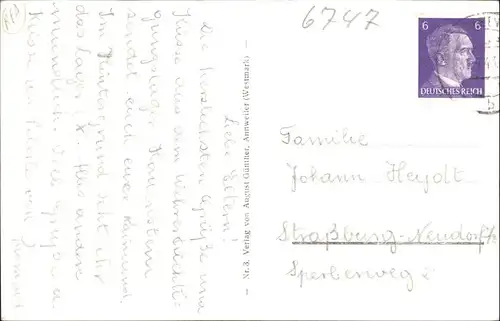 6747
6 6
DEUTSCHES REICH
Familie
Johann Heydt
Straßburg-Neudorf
Sperberweg 2
Nr.3. Verlag von August Günther, Annweiler (Westmark)
Liebe Eltern!
Die herzlichsten Grüße und
Küsse aus dem Wehrertüchti-
gungslager
sendet euch euer Raimund.
Im Hintergrund seht ihr
das Lager X. Alles andere
mündlich. Viele Grüße u.
Küsse an Pierre von